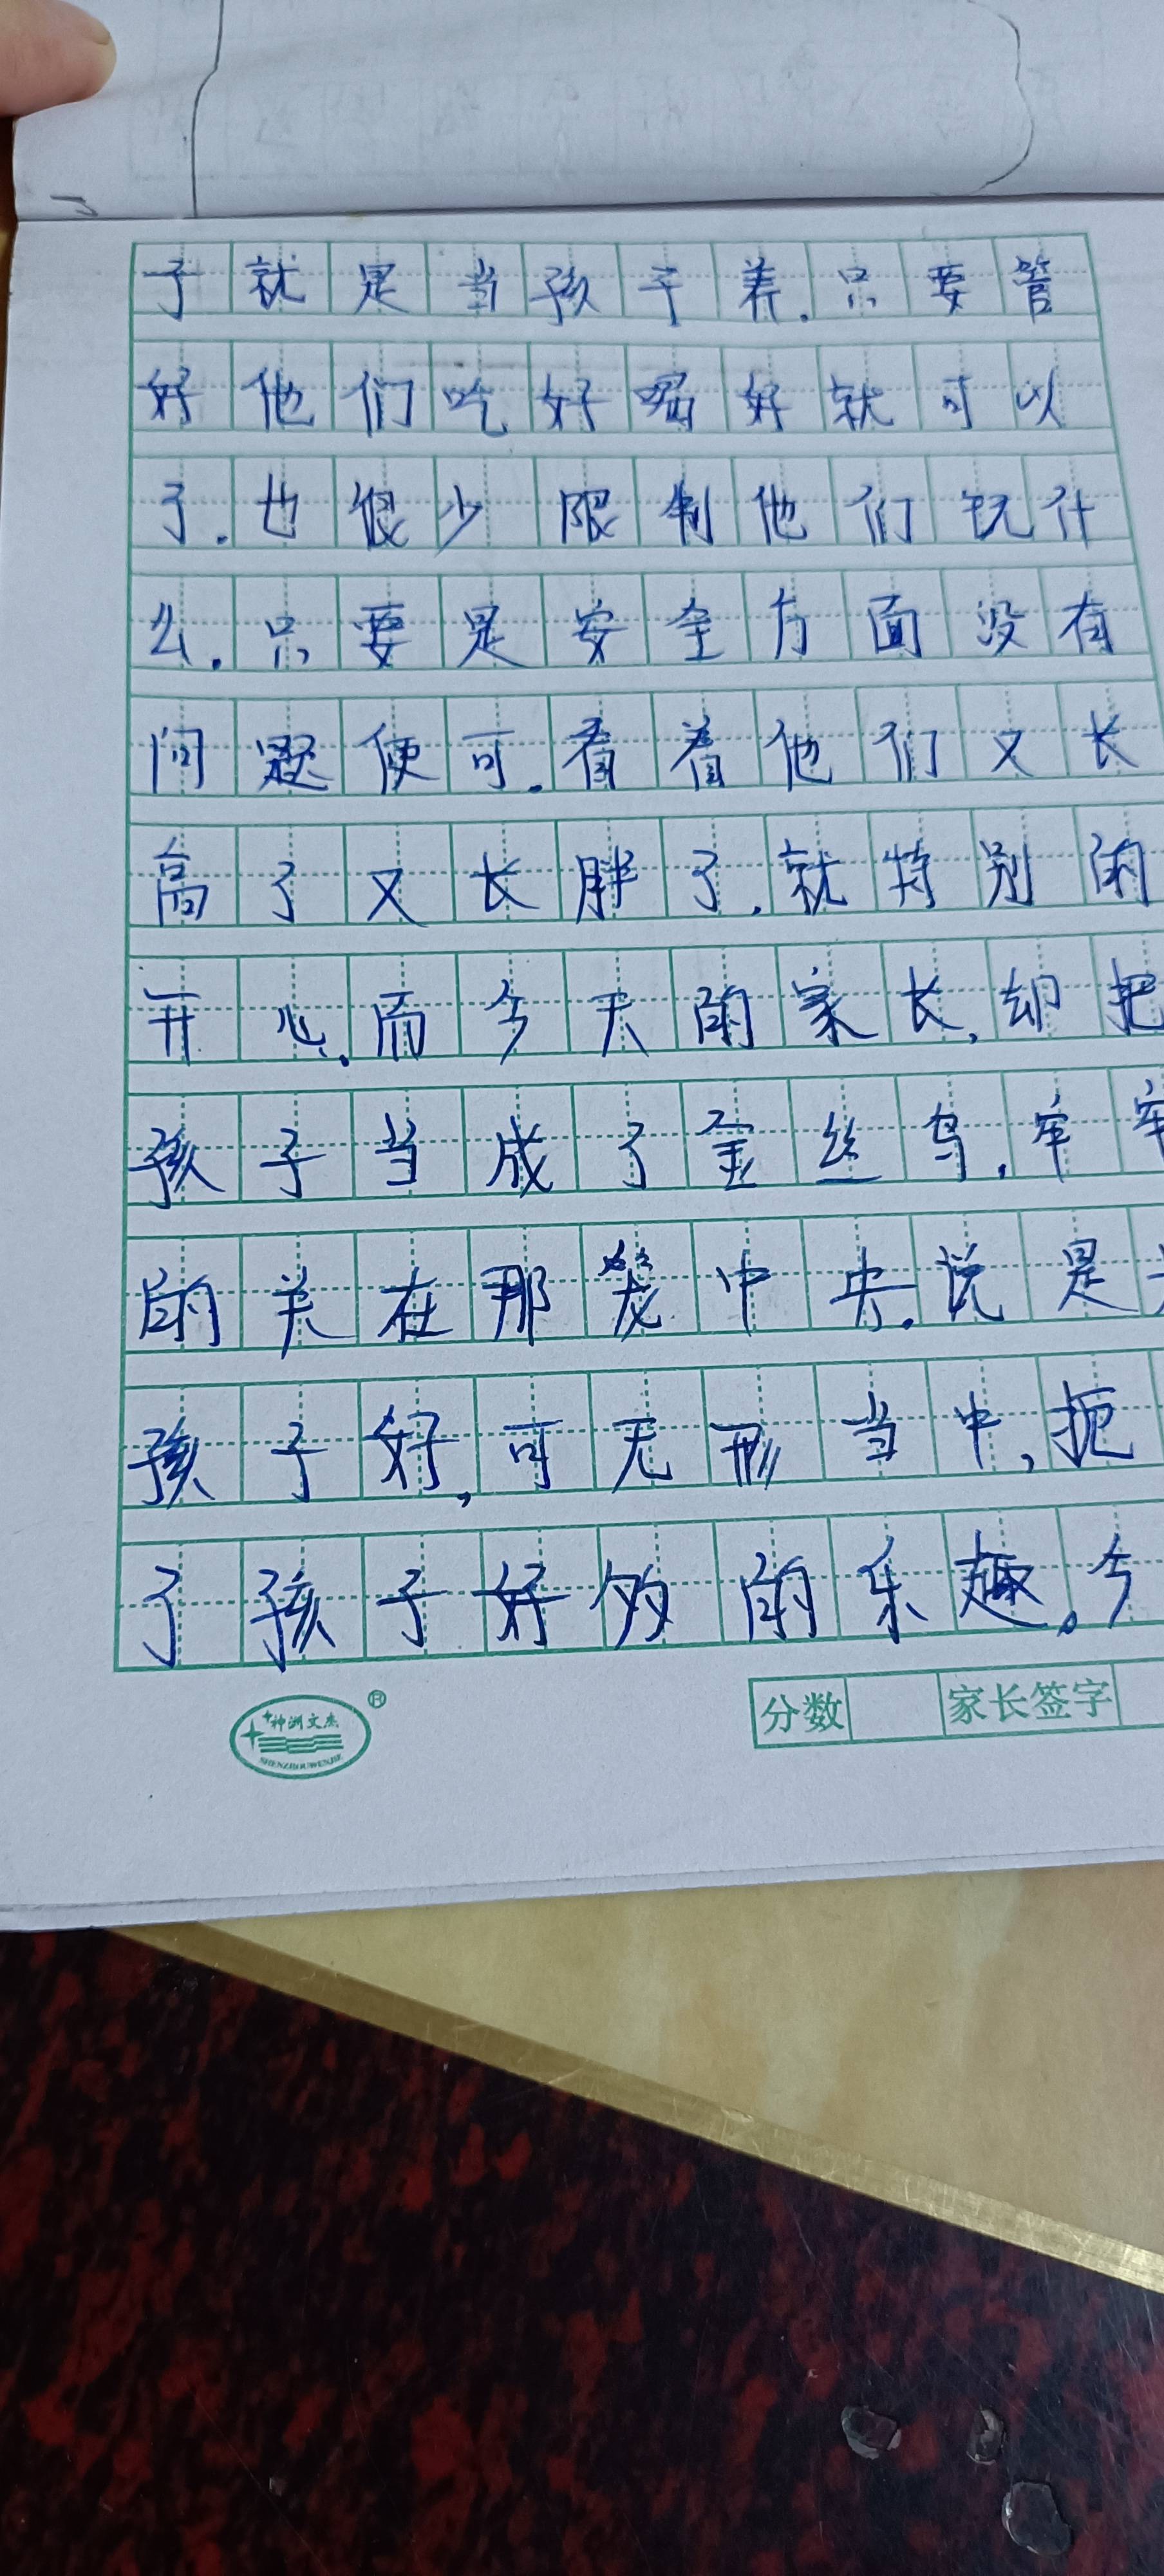 子就是当孩子养.只要管
好他们吃好喝好就可以
了.也很少限制他们玩什
么.只要是安全方面没有
问题便可.看着他们又长
高了又长胖了.就特别的
开心.而今天的家长,却把
孩子当成了金丝鸟.牢牢
的关在那笼中央.说是
孩子好,可无形当中,扼
了孩子好多的乐趣。今
神洲文杰®
SHENZHOUWENJIE
分数 家长签字